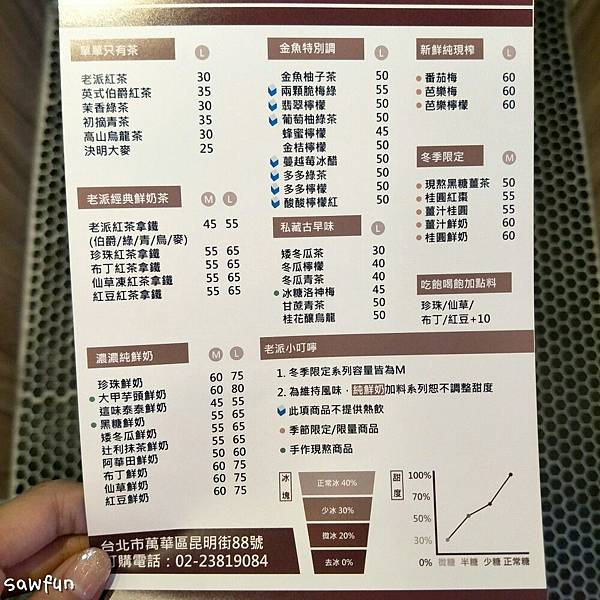 單單只有茶 L
老派紅茶 30
英式伯爵紅茶 35
茉香綠茶 30
初摘青茶 35
高山烏龍茶 30
決明大麥 25
老派經典鮮奶茶 M L
老派紅茶拿鐵 45 55
(伯爵/綠/青/烏/麥)
珍珠紅茶拿鐵 55 65
布丁紅茶拿鐵 55 65
仙草凍紅茶拿鐵 55 65
紅豆紅茶拿鐵 55 65
濃濃純鮮奶 M L
珍珠鮮奶 60 75
大甲芋頭鮮奶 60 80
這味泰泰鮮奶 45 55
黑糖鮮奶 55 65
矮冬瓜鮮奶 55 65
辻利抹茶鮮奶 55 65
阿華田鮮奶 50 60
布丁鮮奶 60 75
仙草鮮奶 60 75
紅豆鮮奶 60 75
金魚特別調 L
金魚柚子茶 50
兩顆脆梅綠 55
翡翠檸檬 50
葡萄柚綠茶 50
蜂蜜檸檬 45
金桔檸檬 50
蔓越莓冰醋 50
多多綠茶 50
多多檸檬 50
酸酸檸檬紅 50
私藏古早味 L
矮冬瓜茶 30
冬瓜檸檬 40
冬瓜青茶 40
冰糖洛神梅 45
甘蔗青茶 50
桂花釀烏龍 50
新鮮純現榨 L
番茄梅 60
芭樂梅 60
芭樂檸檬 60
冬季限定 M
現熬黑糖薑茶 50
桂圓紅棗 55
薑汁桂圓 55
薑汁鮮奶 60
桂圓鮮奶 60
吃飽喝飽加點料
珍珠/仙草/
布丁/紅豆+10
老派小叮嚀
1. 冬季限定系列容量皆為M
2. 為維持風味，純鮮奶加料系列恕不調整甜度
此項商品不提供熱飲
季節限定/限量商品
手作現熬商品
冰塊
正常冰 40%
少冰 30%
微冰 20%
去冰 0%
甜度
100%
70%
50%
30%
0% 微糖 半糖 少糖 正常糖
台北市萬華區昆明街88號
訂購電話：02-23819084
sawfun